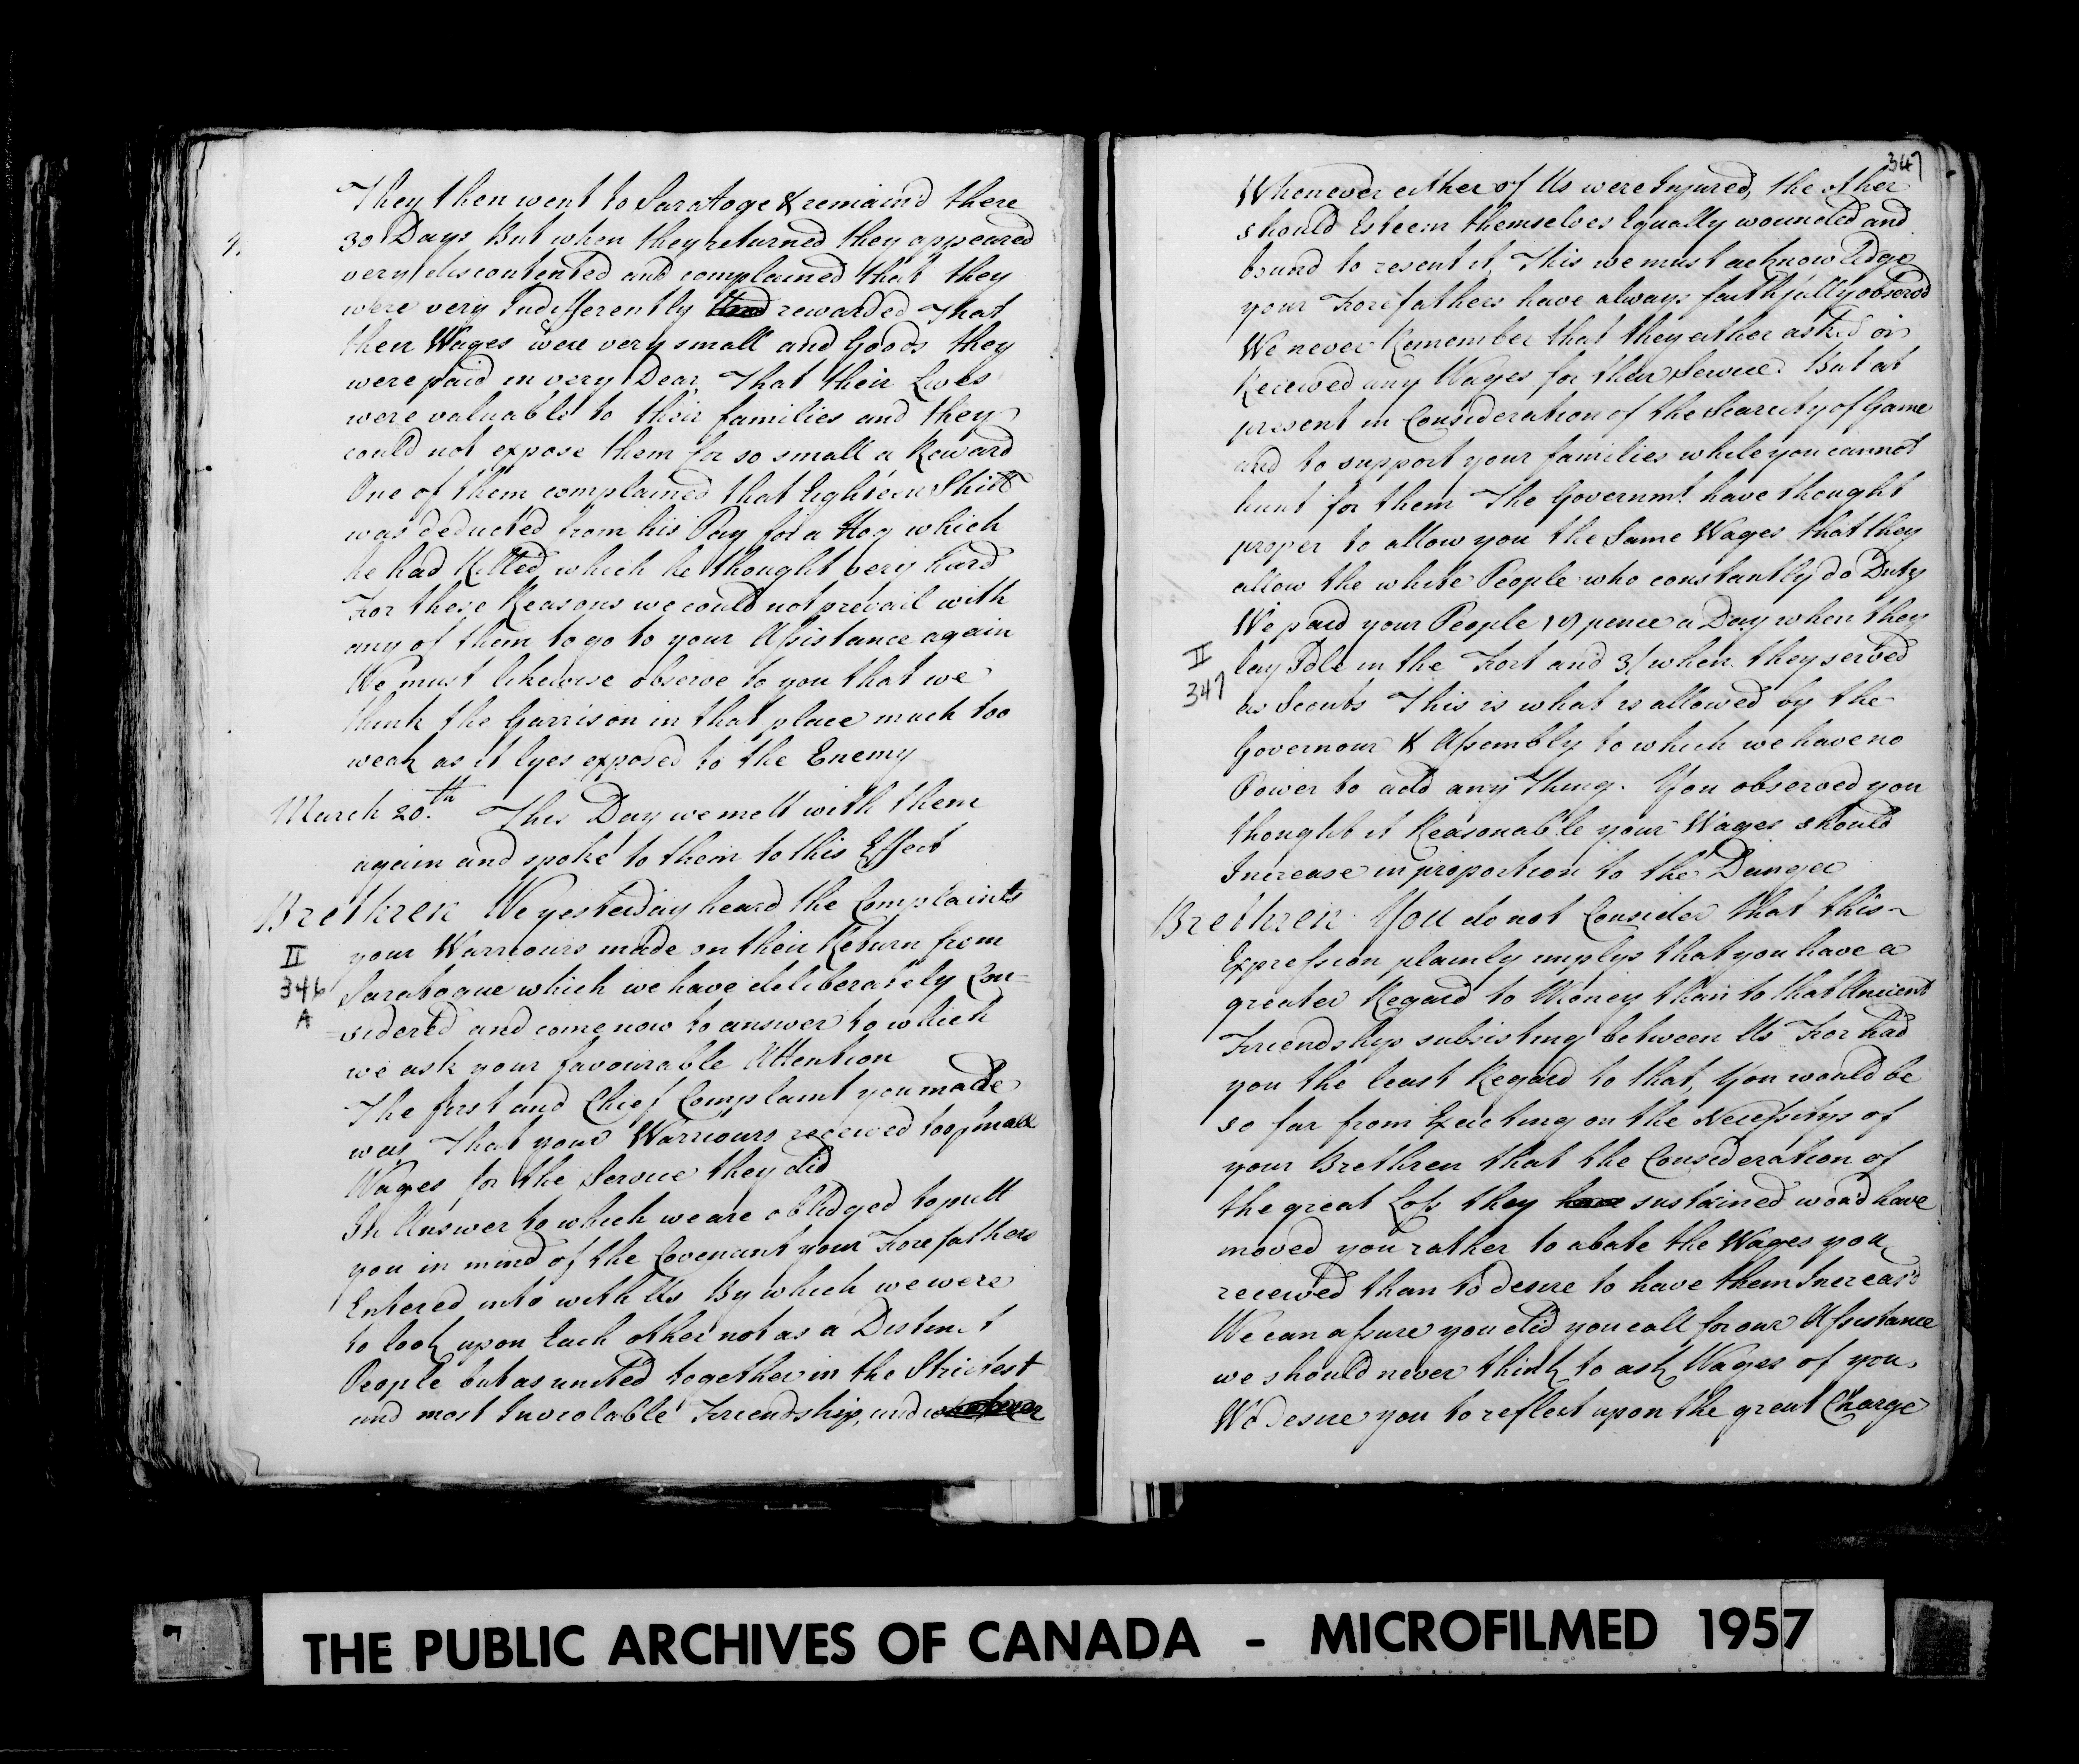 They then went to Saratoge & remain'd there
4.
30 Days But when they returned they appeared
very discontented and complained that they
were very Indifferently rewarded That
their Wages were very small and Goods they
were paid in very Dear. That their Lives
were valuable to their families and they
could not expose them for so small a Reward
One of them complained that Eighteen Shill
was deducted from his Pay for a Hog which
he had Killed which he thought very hard
For these Reasons we could not prevail with
any of them to go to your Assistance again
We must likewise observe to you that we
think the Garrison in that place much too
weak as it lyes exposed to the Enemy
March 20.th This Day we mett with them
again and spoke to them to this Effect
Brethren We yesterday heard the Complaints
your Warriours made on their Return from
II
346
A
Saratogue which we have deliberately Con=
=sidered and come now to answer to which
we ask your favourable Attention
The first and Chief Complaint you made
was That your Warriours received too small
Wages for the Service they did
In Answer to which we are obledged to putt
you in mind of the Covenant your Forefathers
Entered into with Us By which we were
to look upon Each other not as a Distinct
People but as united together in the Strictest
and most Inviolable Friendship, and whenever
347
Whenever either of Us were Injured, the other
should Esteem themselves Equally wounded and
bound to resent it, This we must acknowledge
your Forefathers have always faithfully observed
We never Remember that they either asked or
Received any Wages for their Service But at
present in Consideration of the Scarcity of Game
and to support your families while you cannot
hunt for them The Governmt. have thought
proper to allow you the Same Wages that they
allow the white People who constantly do Duty
We paid your People pence a Day when they
II
347
lay Idle in the Fort and 3/ when they served
as Scouts This is what is allowed by the
Governour & Assembly to which we have no
Power to add any Thing. You observed you
thought it Reasonable your Wages should
Increase in proportion to the Danger
Brethren You do not Consider that this
Expression plainly implys that you have a
greater Regard to Money than to that Ancient
Friendship subsisting between Us For had
you the least Regard to that, You would be
so far from Exacting on the Necessitys of
your Brethren that the Consideration of
the great Loss they have sustained wou'd have
moved you rather to abate the Wages you
received than to desire to have them Increas'd
We can assure you did you call for our Assistance
we should never think to ask Wages of you.
We desire you to reflect upon the great Charge
7
THE PUBLIC ARCHIVES OF CANADA - MICROFILMED 1957